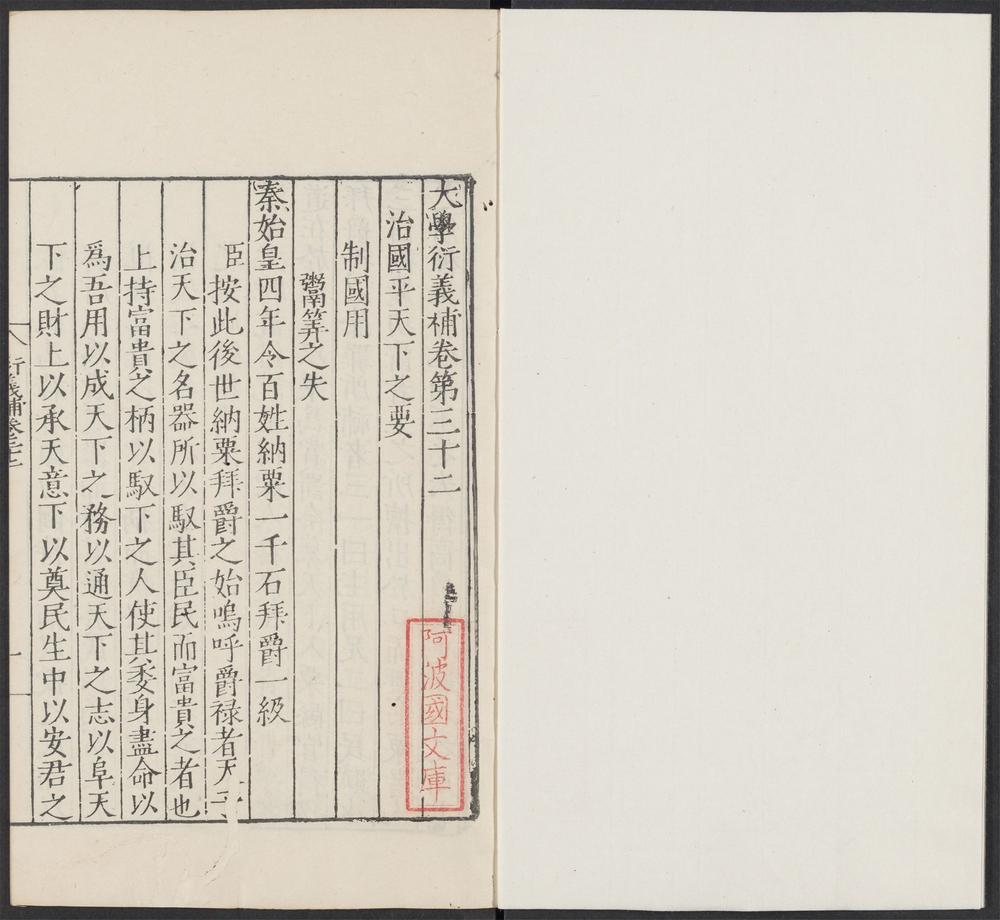 大學衍義補卷第三十二
治國平天下之要
制國用
鬻筭之失
秦始皇四年令百姓納粟一千石拜爵一級
臣按此後世納粟拜爵之始嗚呼爵禄者天子
治天下之名器所以馭其臣民而富貴之者也
上持富貴之柄以馭下之人使其委身盡命以
爲吾用以成天下之務以通天下之志以阜天
下之財上以承天意下以奠民生中以安君之
衍義補卷三十二
一
阿波國文庫